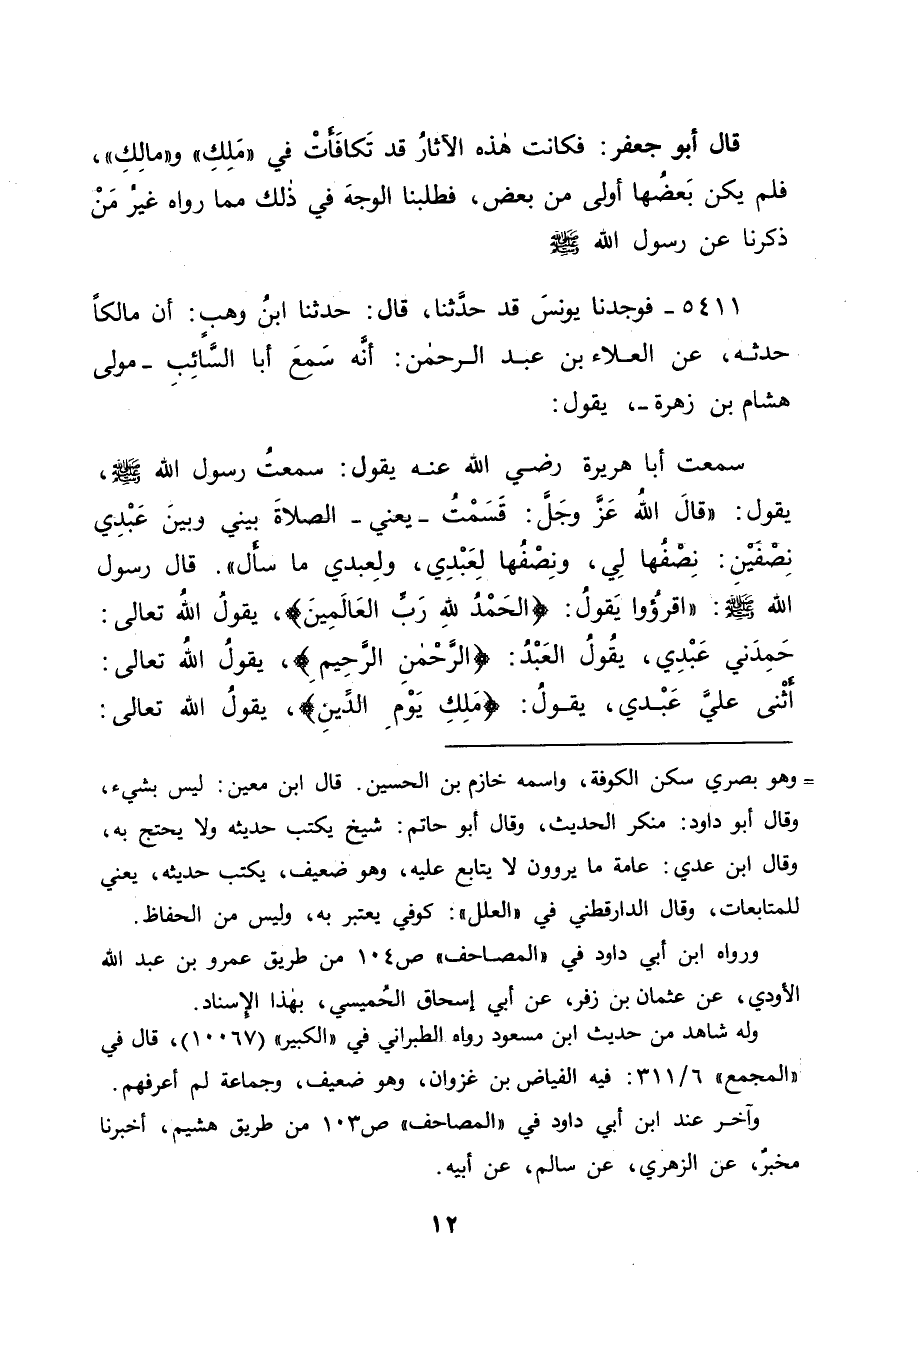 قال أبو جعفر: فكانت هٰذه الآثارُ قد تَكافَأَتْ في «مَلِكِ» و«مالِكِ»،
فلم يكن بَعضُها أولى من بعض، فطلبنا الوجهَ في ذٰلك مما رواه غيرُ مَنْ
ذكرنا عن رسول الله ﷺ
٥٤١١ ـ فوجدنا يونسَ قد حدَّثنا، قال: حدثنا ابنُ وهبٍ: أن مالكاً
حدثـه، عن العـلاء بن عبـد الـرحمٰن: أنَّه سَمِعَ أبا السَّائِبِ ـ مولى
هشام بن زهرة ـ، يقول:
سمعت أبا هريرة رضي الله عنه يقول: سمعتُ رسول الله ﷺ،
يقول: «قالَ اللهُ عَزَّ وجَلَّ: قَسَمْتُ ـ يعني ـ الصلاةَ بيني وبينَ عَبْدِي
نِصْفَيْنِ: نِصْفُها لِي، ونِصْفُها لِعَبْدِي، ولِعبدي ما سأَل». قال رسول
الله ﷺ: «اقرؤُوا يَقولُ: ﴿الحَمْدُ للهِ رَبِّ العَالَمِينَ﴾، يقولُ اللهُ تعالى:
حَمِدَني عَبْدِي، يقُولُ العَبْدُ: ﴿الرَّحْمٰنِ الرَّحِيمِ﴾، يقولُ اللهُ تعالى:
أَثْنى عليَّ عَبْـدي، يقـولُ: ﴿مَلِكِ يَوْمِ الدِّينِ﴾، يقولُ الله تعالى:
= وهو بصري سكن الكوفة، واسمه خازم بن الحسين. قال ابن معين: ليس بشيء،
وقال أبو داود: منكر الحديث، وقال أبو حاتم: شيخ يكتب حديثه ولا يحتج به،
وقال ابن عدي: عامة ما يروون لا يتابع عليه، وهو ضعيف، يكتب حديثه، يعني
للمتابعات، وقال الدارقطني في «العلل»: كوفي يعتبر به، وليس من الحفاظ.
ورواه ابن أبي داود في «المصـاحف» ص١٠٤ من طريق عمرو بن عبد الله
الأودي، عن عثمان بن زفر، عن أبي إسحاق الحُميسي، بهٰذا الإسناد.
وله شاهد من حديث ابن مسعود رواه الطبراني في «الكبير» (١٠٠٦٧)، قال في
«المجمع» ٣١١/٦: فيه الفياض بن غزوان، وهو ضعيف، وجماعة لم أعرفهم.
وآخـر عند ابن أبي داود في «المصاحف» ص١٠٣ من طريق هشيم، أخبرنا
مخبرٌ، عن الزهري، عن سالم، عن أبيه.
١٢